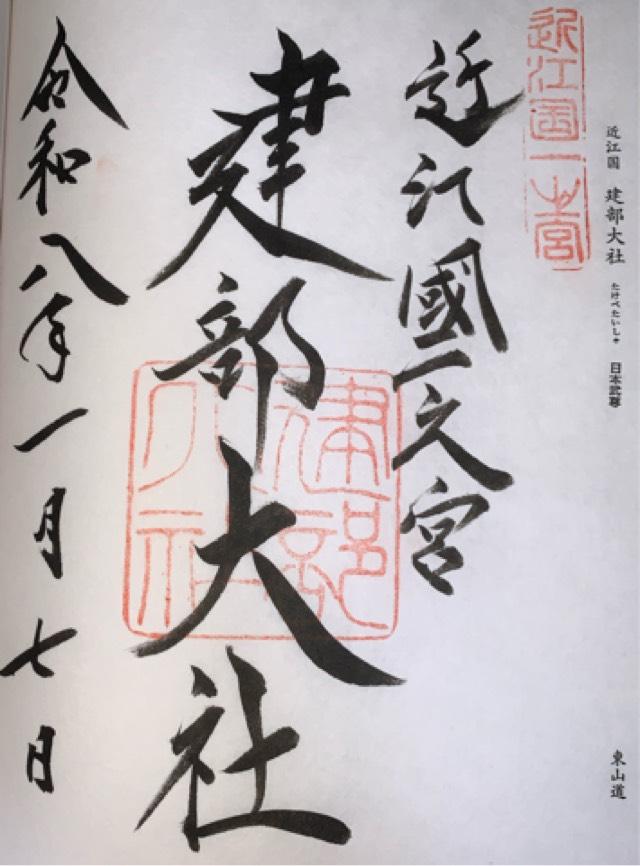 近江国 建部大社 たけべたいしゃ 日本武尊
東山道
近江国一之宮
近江國一之宮
建部大社
建部大社
令和八年一月七日